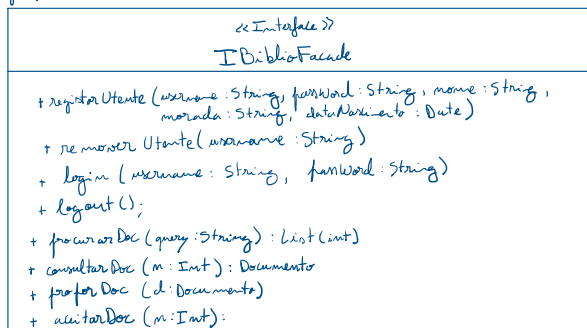 <<Interface>>
IBiblioFacade
+ registarUtente (username : String, password : String, nome : String,
morada : String, dataNascimento : Date)
+ remover Utente( username : String)
+ login (username : String, passWord : String)
+ logout ();
+ procurarDoc (query : String) : List(int)
+ consultarDoc (n : Int) : Documento
+ propor Doc (d : Documento)
+ aceitarDoc (n : Int) :